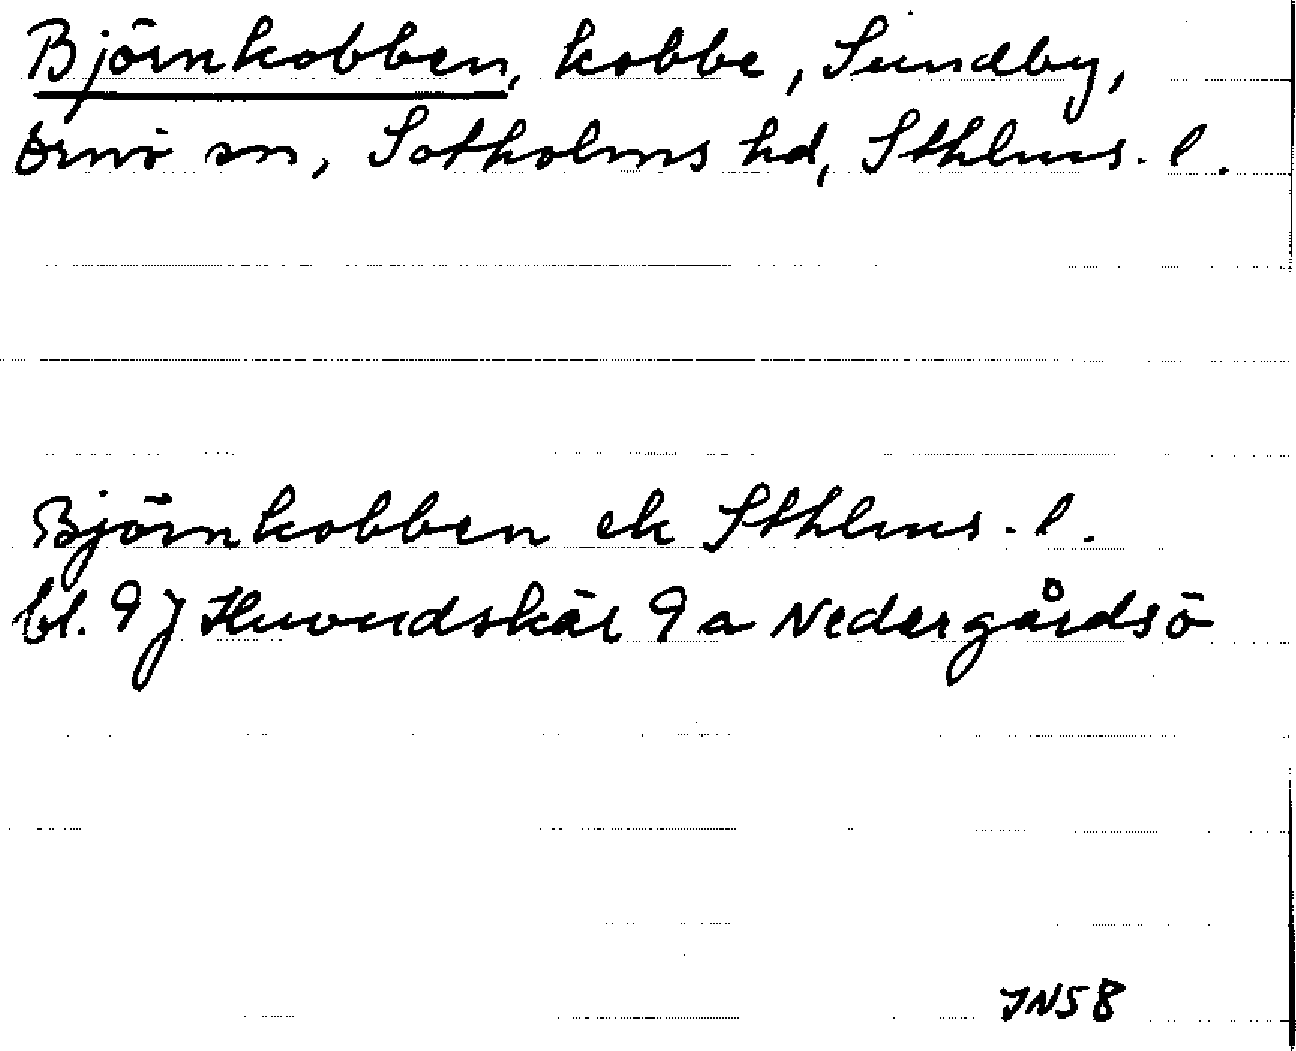 Björnkobben, kobbe, Sundby,
Ornö sn, Sotholms hd, Sthlms. l.
Björnkobben ek Sthlms. l.
bl. 9 J Huvudskär 9 a Nedergårdsö
JN58